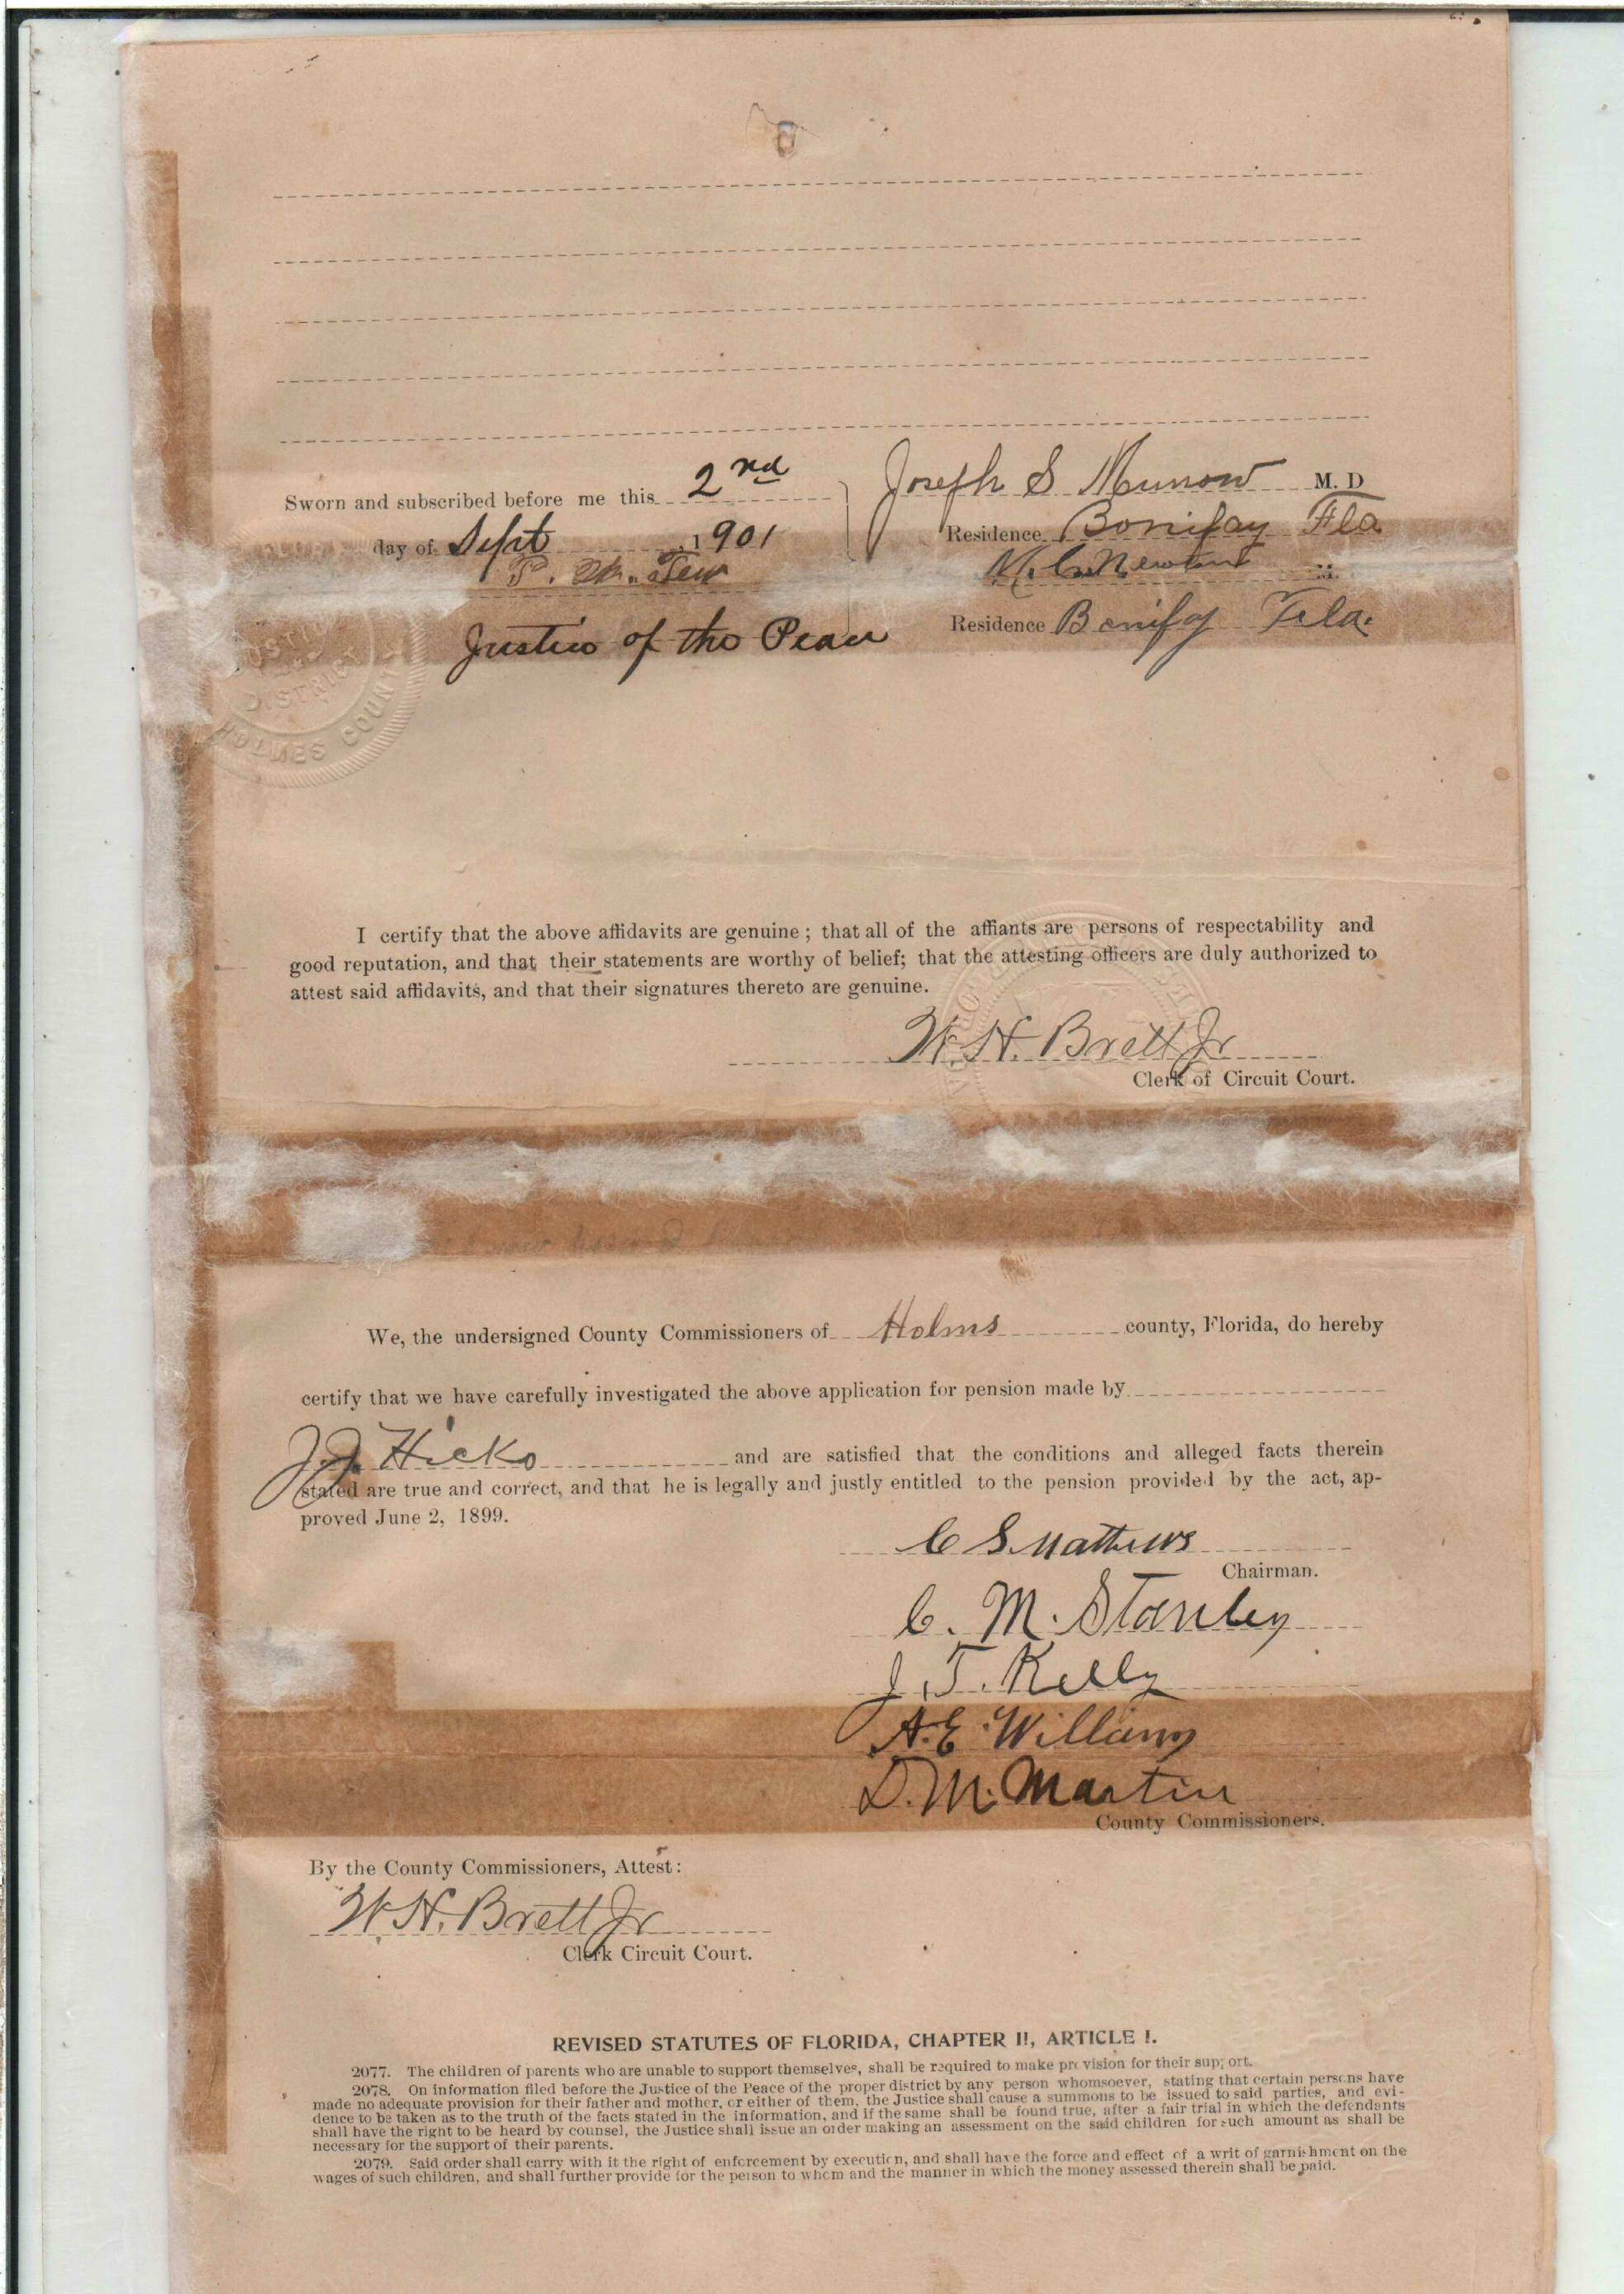 Sworn and subscribed before me this 2nd
day of Sept 1901
P. M. Tew
Justice of the Peace
Joseph S M. D
Residence Bonifay Fla
Newton M.
Residence Bonifay Fla.
JUSTI
DISTRICT
HOLMES COUNT
I certify that the above affidavits are genuine; that all of the affiants are persons of respectability and
good reputation, and that their statements are worthy of belief; that the attesting officers are duly authorized to
attest said affidavits, and that their signatures thereto are genuine.
W. H. Brett Jr
Clerk of Circuit Court.
We, the undersigned County Commissioners of Holms county, Florida, do hereby
certify that we have carefully investigated the above application for pension made by
J. J. Hicks and are satisfied that the conditions and alleged facts therein
stated are true and correct, and that he is legally and justly entitled to the pension provided by the act, ap-
proved June 2, 1899.
C S Mathews
Chairman.
C. M. Stanley
J. T. Kelly
A. E. Williams
D. M. Martin
County Commissioners.
By the County Commissioners, Attest:
W. H. Brett Jr
Clerk Circuit Court.
REVISED STATUTES OF FLORIDA, CHAPTER II, ARTICLE I.
2077. The children of parents who are unable to support themselves, shall be required to make provision for their support.
2078. On information filed before the Justice of the Peace of the proper district by any person whomsoever, stating that certain persons have
made no adequate provision for their father and mother, or either of them, the Justice shall cause a summons to be issued to said parties, and evi-
dence to be taken as to the truth of the facts stated in the information, and if the same shall be found true, after a fair trial in which the defendants
shall have the right to be heard by counsel, the Justice shall issue an order making an assessment on the said children for such amount as shall be
necessary for the support of their parents.
2079. Said order shall carry with it the right of enforcement by execution, and shall have the force and effect of a writ of garnishment on the
wages of such children, and shall further provide for the person to whom and the manner in which the money assessed therein shall be paid.